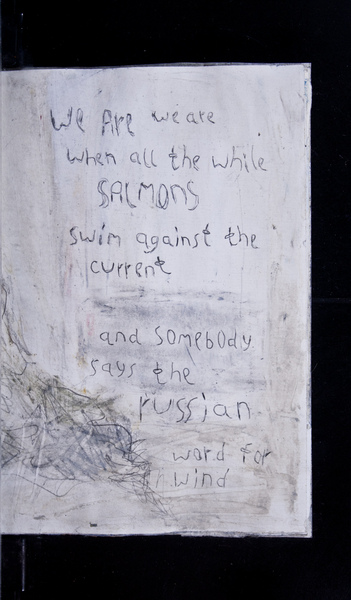 We Are we are
when all the while
SALMONS
swim against the
current
and somebody
says the
russian
word for
wind